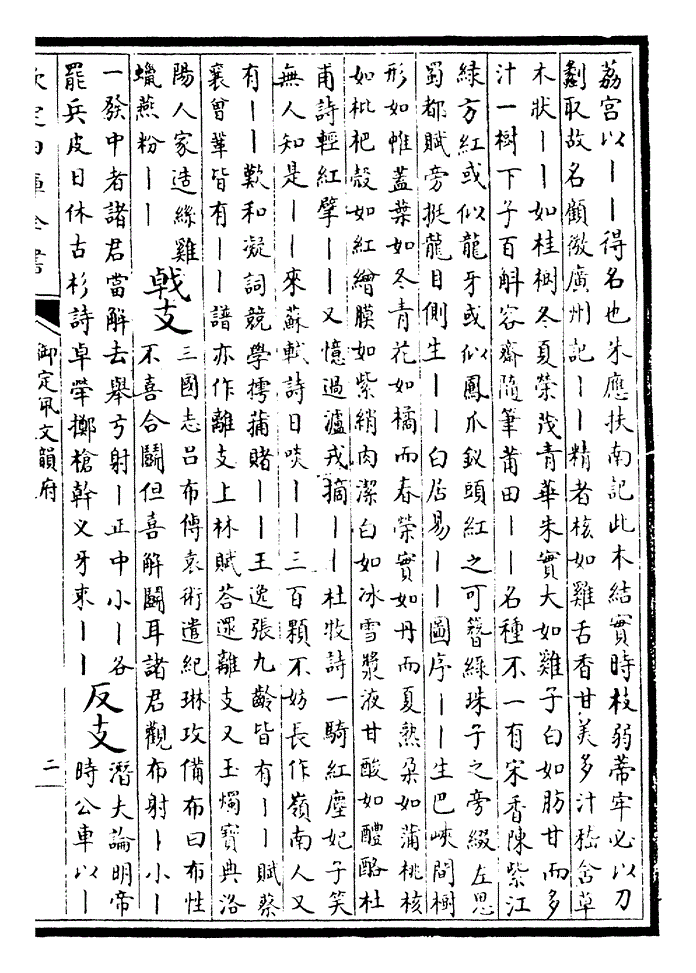 荔宮以丨丨得名也朱應扶南記此木結實時枝弱蔕牢必以刀
劙取故名顧微廣州記丨丨精者核如雞舌香甘美多汁嵇含草
木狀丨丨如桂樹冬夏榮茂青華朱實大如雞子白如肪甘而多
汁一樹下子百斛容齋隨筆莆田丨丨名種不一有宋香陳紫江
緑方紅或似龍牙或似鳳爪釵頭紅之可簪緑珠子之旁綴左思
蜀都賦旁挺龍目側生丨丨白居易丨丨圖序丨丨生巴峽間樹
形如帷蓋葉如冬青花如橘而春榮實如丹而夏熟朶如蒲桃核
如枇杷殻如紅繒膜如紫綃肉潔白如冰雪漿液甘酸如醴酪杜
甫詩輕紅擘丨丨又憶過瀘戎摘丨丨杜牧詩一騎紅塵妃子笑
無人知是丨丨來蘇軾詩日啖丨丨三百顆不妨長作嶺南人又
有丨丨歎和凝詞競學摴蒲賭丨丨王逸張九齡皆有丨丨賦蔡
襄曾鞏皆有丨丨譜亦作離支上林賦荅遝離支又玉燭寶典洛
陽人家造絲雞
蠟燕粉丨丨
戟支
三國志吕布傳袁術遣紀琳攻備布曰布性
不喜合鬭但喜解鬭耳諸君觀布射丨小丨
一發中者諸君當解去舉弓射丨正中小丨各
罷兵皮日休古杉詩卓犖擲槍幹义牙束丨丨
反支
潛夫論明帝
時公車以丨
欽定四庫全書
御定佩文韻府
二